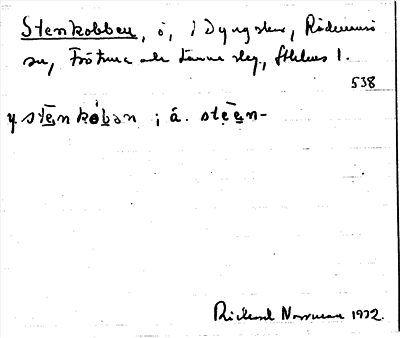 Stenkobben, ö, i Dyngsten, Rådmansö
sn, Frötuna och Länna skg., Sthlms l.
538
y stēn kòbən ; á. stēen-
Rickard Norrman 1932.